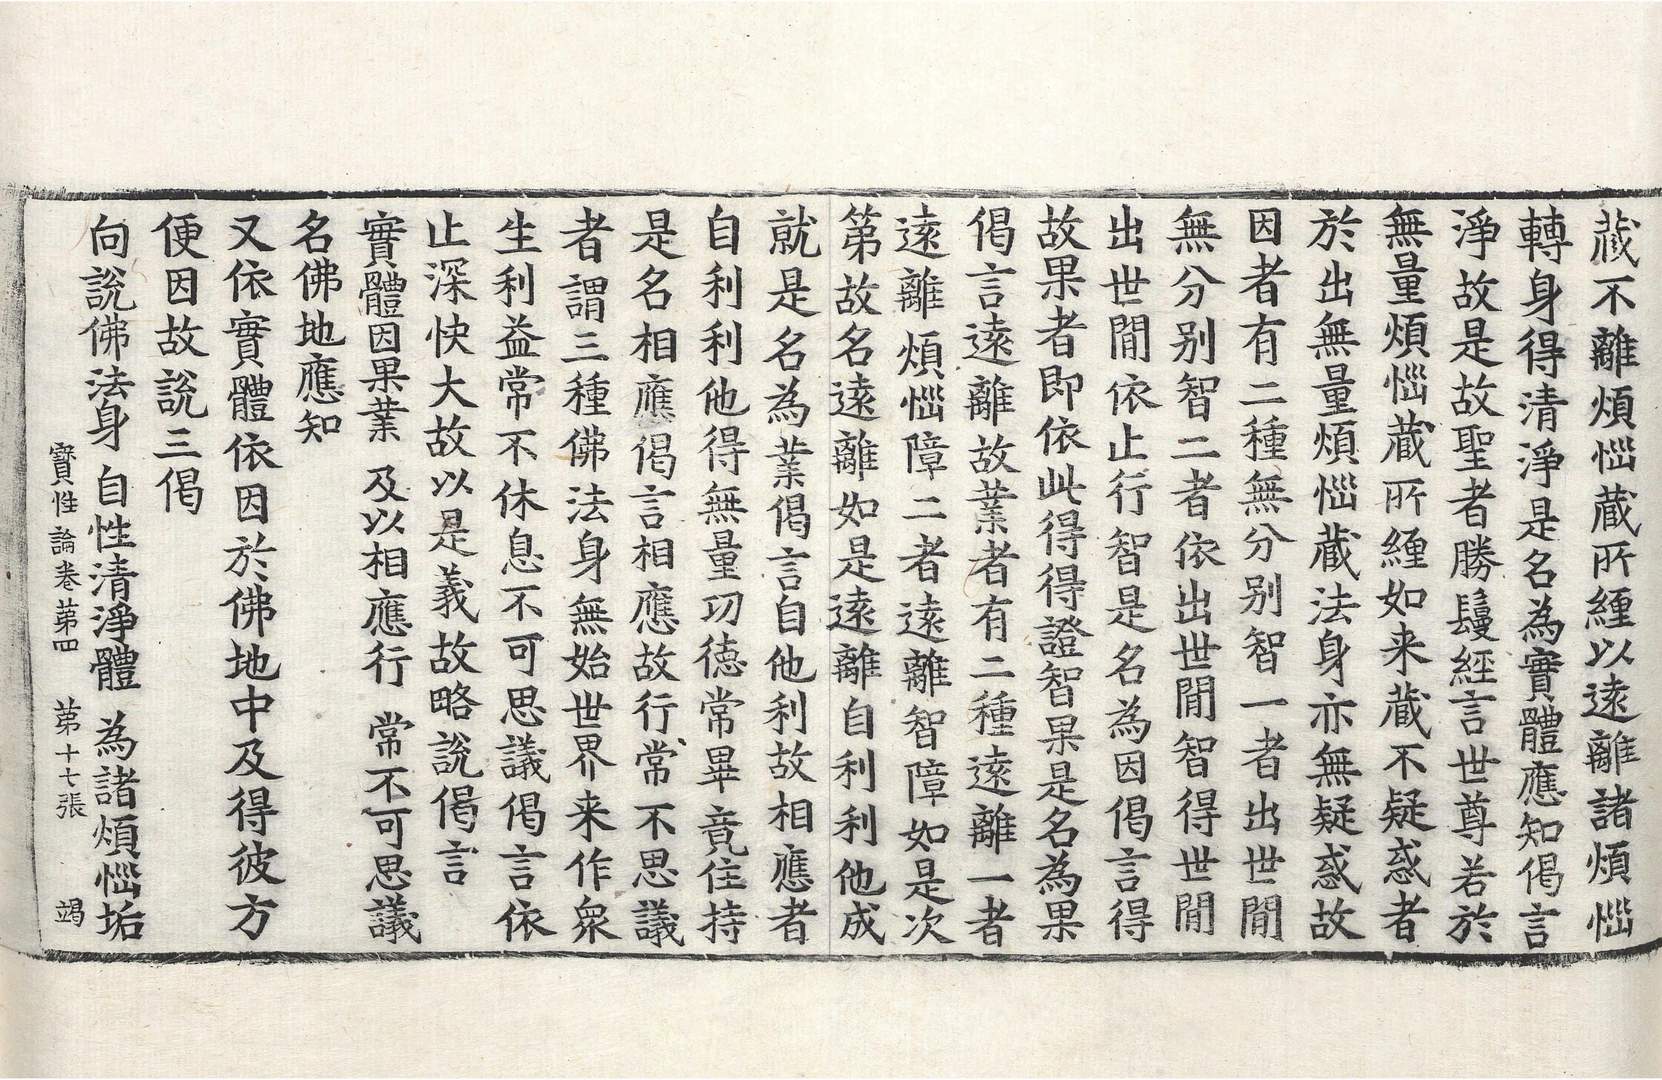 藏不離煩惱藏所纏以遠離諸煩惱
轉身得清淨是名為實體應知偈言
淨故是故聖者勝鬘經言世尊若於
無量煩惱藏所纏如来藏不疑惑者
於出無量煩惱藏法身亦無疑惑故
因者有二種無分别智一者出世閒
無分别智二者依出世閒智得世閒
出世閒依止行智是名為因偈言得
故果者即依此得得證智果是名為果
偈言遠離故業者有二種遠離一者
遠離煩惱障二者遠離智障如是次
第故名遠離如是遠離自利利他成
就是名為業偈言自他利故相應者
自利利他得無量功德常畢竟住持
是名相應偈言相應故行常不思議
者謂三種佛法身無始世界来作衆
生利益常不休息不可思議偈言依
止深快大故以是義故略說偈言
實體因果業 及以相應行 常不可思議
名佛地應知
又依實體依因於佛地中及得彼方
便因故說三偈
向說佛法身 自性清淨體 為諸煩惱垢
寶性論卷第四 第十七張 竭